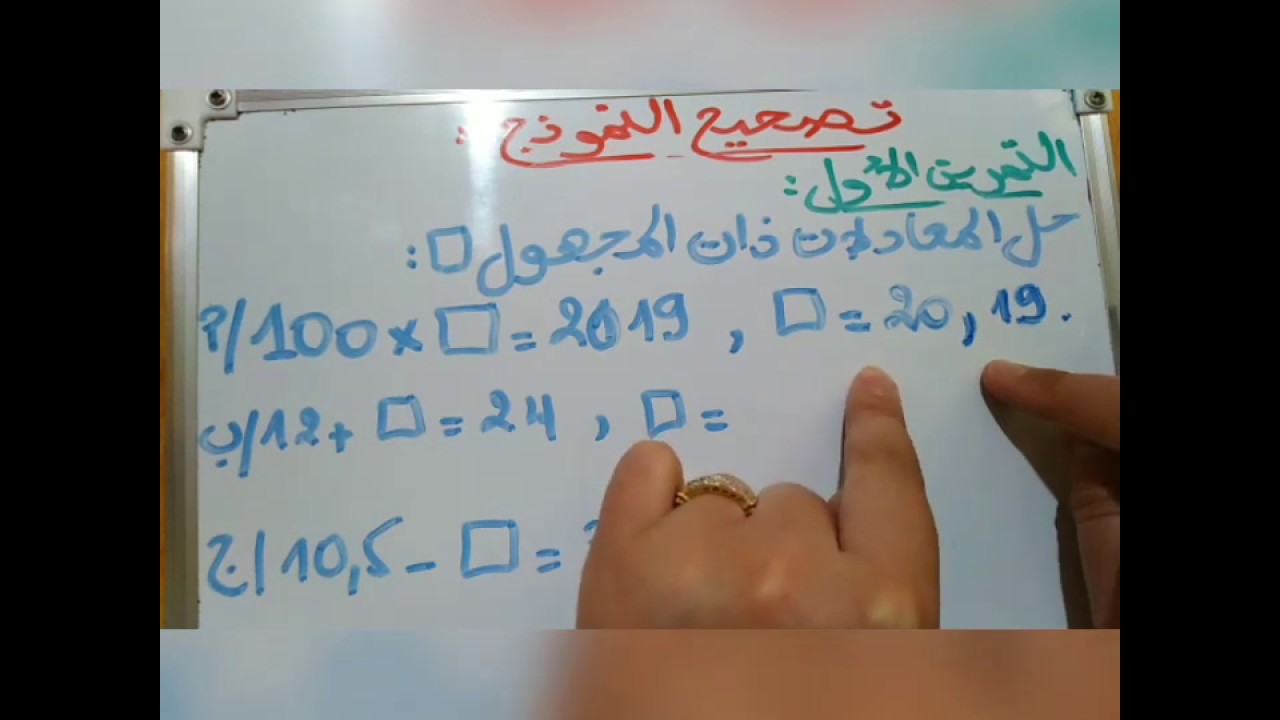 تصحيح النموذج :
التمرين الأول :
حل المعادلات ذات المجهول □ :
أ/ 100 × □ = 2019 , □ = 20,19.
ب/ 12 + □ = 24 , □ =
ج/ 10,5 - □ =